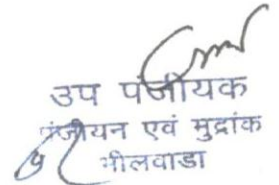 उप पंजीयक
पंजीयन एवं मुद्रांक
भीलवाडा